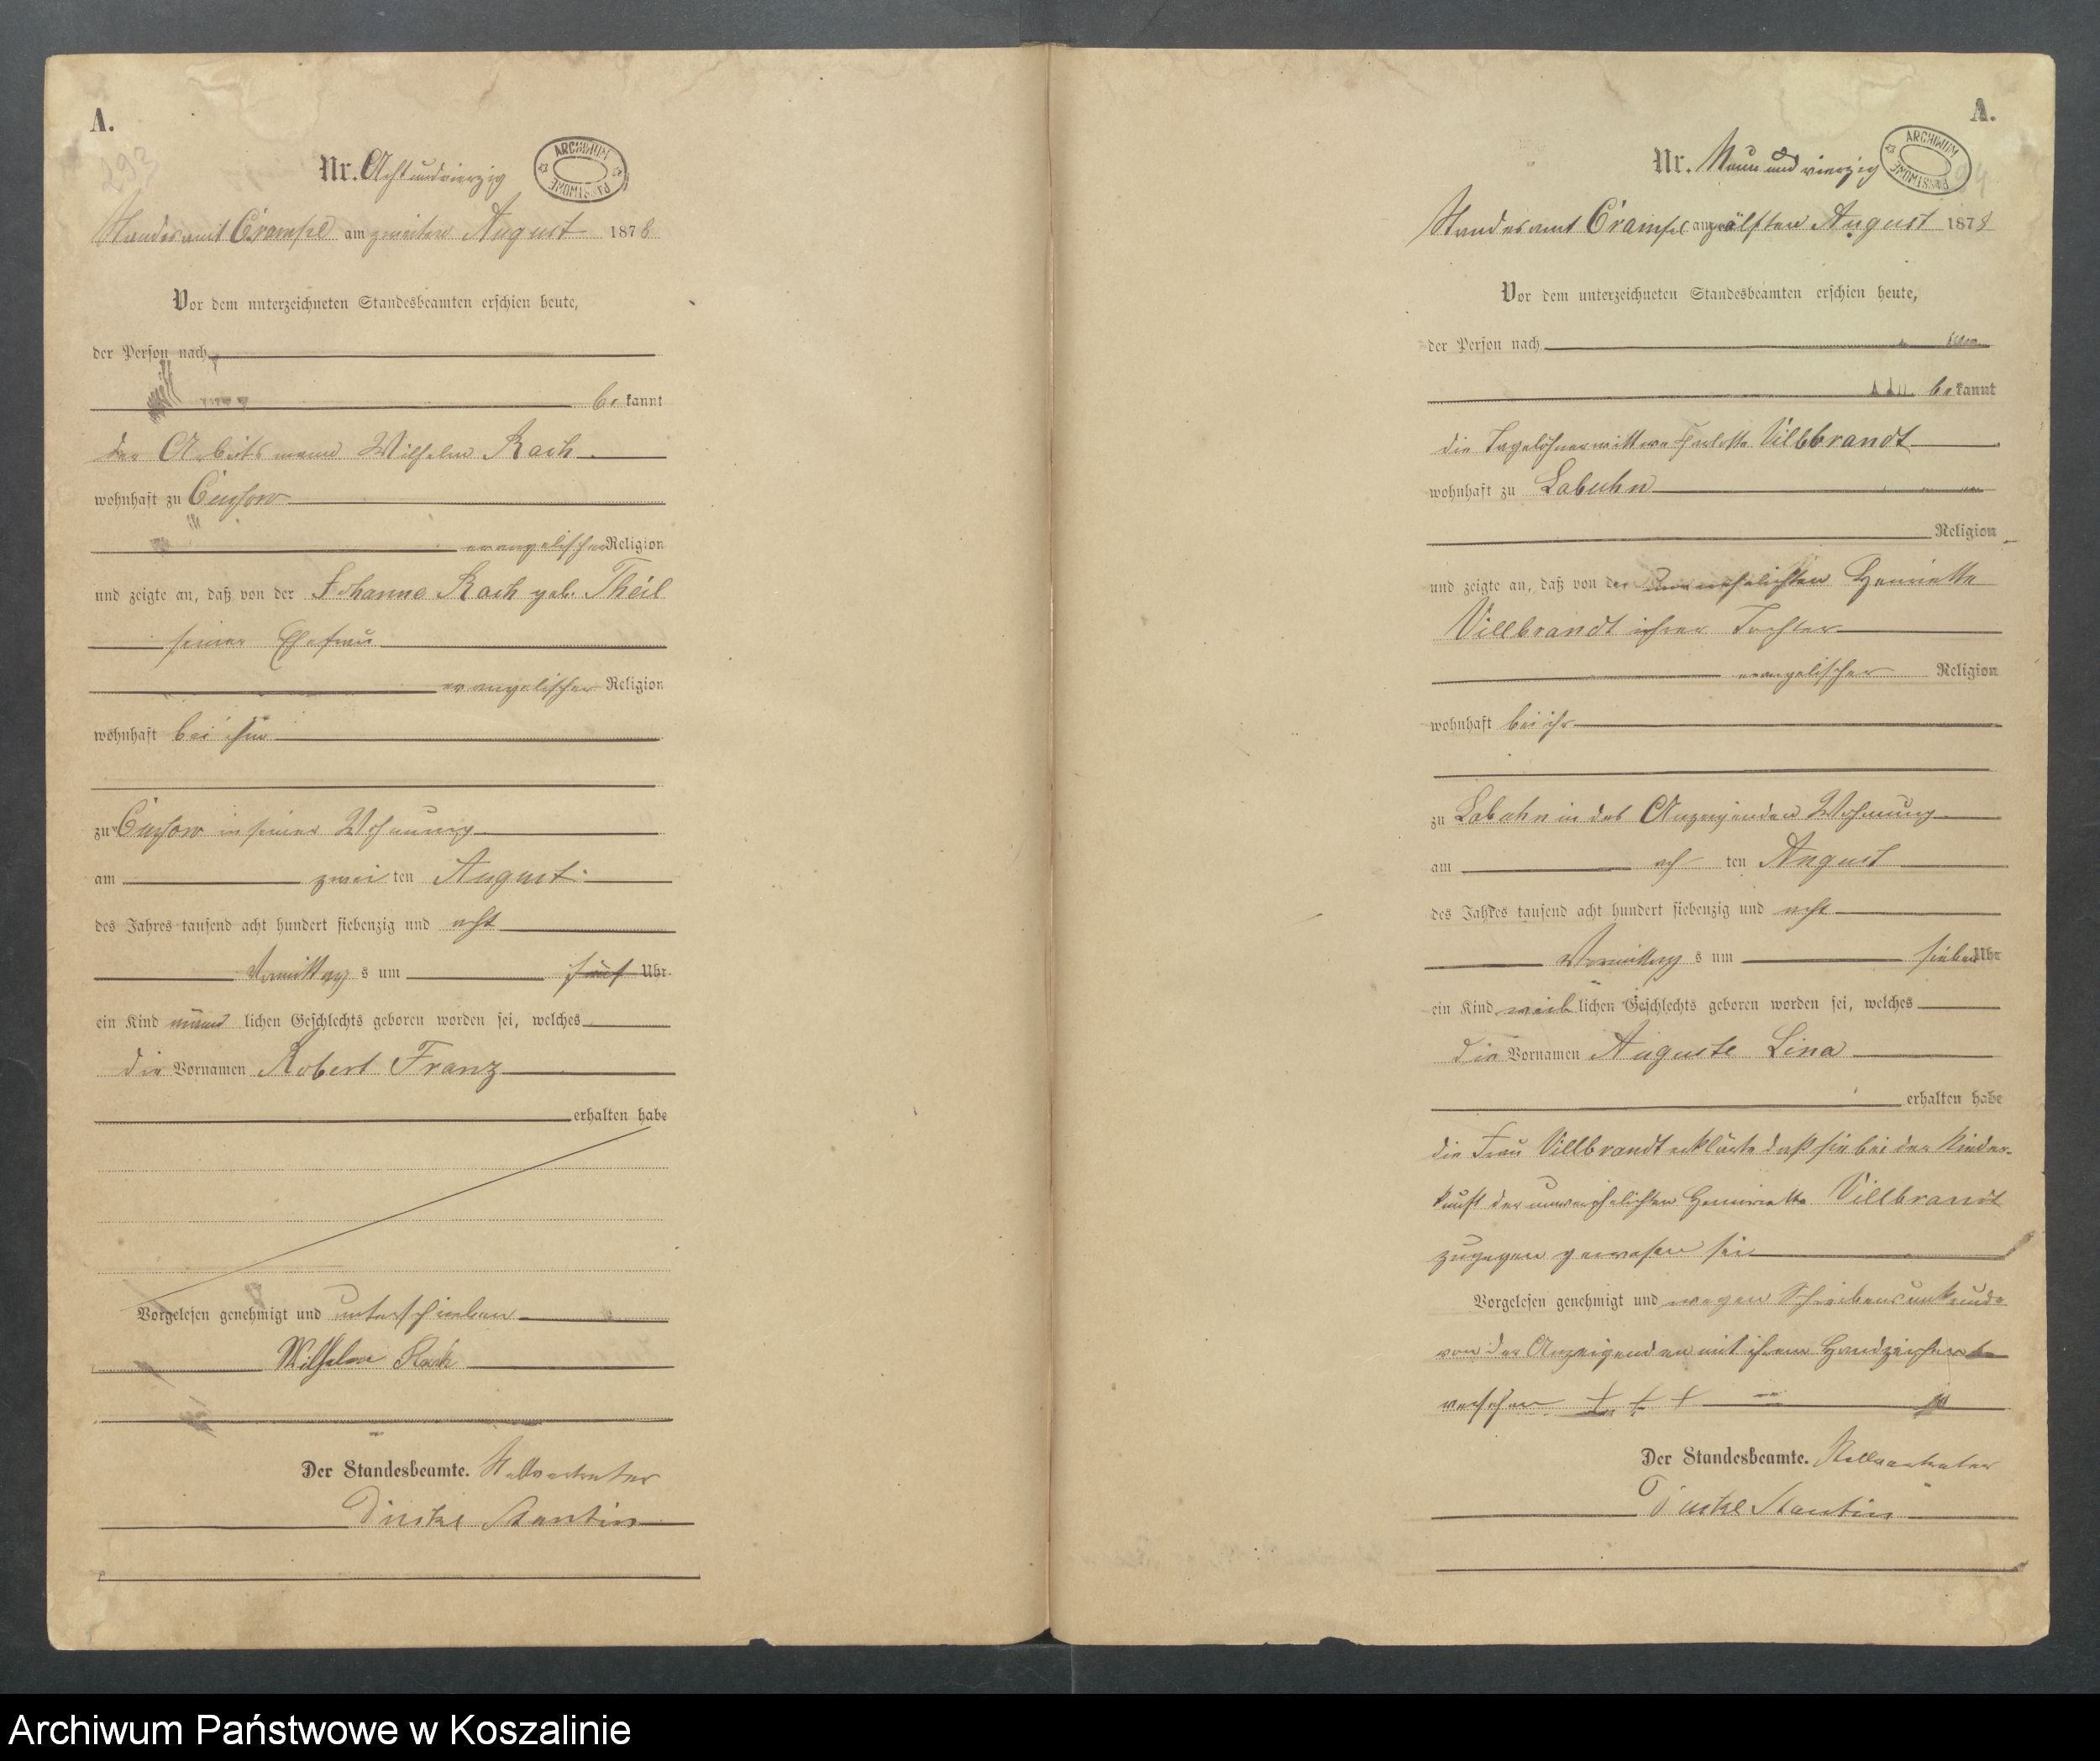 A.
293
Nr. Achtundvierzig
ARCHIWUM PAŃSTWOWE
Standesamt Crampe am zweiten August 1878
Vor dem unterzeichneten Standesbeamten erschien heute,
der Person nach
bekannt
der Arbeitsmann Wilhelm Rach
wohnhaft zu
evangelischer Religion
und zeigte an, daß von der Johanne Rach geb. Theil
seiner Ehefrau
evangelischer Religion
wohnhaft bei ihm
zu in seiner Wohnung
am zwei ten August
des Jahres tausend acht hundert siebenzig und acht
Vormittag s um fünf Uhr
ein Kind männ lichen Geschlechts geboren worden sei, welches
die Vornamen Robert Franz
erhalten habe
Vorgelesen genehmigt und unterschrieben
Wilhelm Rach
Der Standesbeamte. Stellvertreter
A.
Nr. Neun und vierzig
ARCHIWUM PAŃSTWOWE
Standesamt Crampe am zwölften August 1878
Vor dem unterzeichneten Standesbeamten erschien heute,
der Person nach
bekannt
die Tagelöhnerwittwe Charlotte Villbrandt
wohnhaft zu Labuhn
Religion
und zeigte an, daß von der unverehelichten Henriette
Villbrandt ihrer Tochter
evangelischer Religion
wohnhaft bei ihr
zu Labuhn in der Anzeigenden Wohnung
am ach ten August
des Jahres tausend acht hundert siebenzig und acht
Vormittag s um sieben Uhr
ein Kind weib lichen Geschlechts geboren worden sei, welches
die Vornamen Auguste Lina
erhalten habe
die Frau Villbrandt erklärte daß sie bei der Nieder-
kunft der unverehelichten Henriette Villbrandt
zugegen gewesen sei
Vorgelesen genehmigt und wegen Schreibensunkunde
von der Anzeigenden mit ihrem Handzeichen
versehen + + +
Der Standesbeamte. Stellvertreter
Archiwum Państwowe w Koszalinie